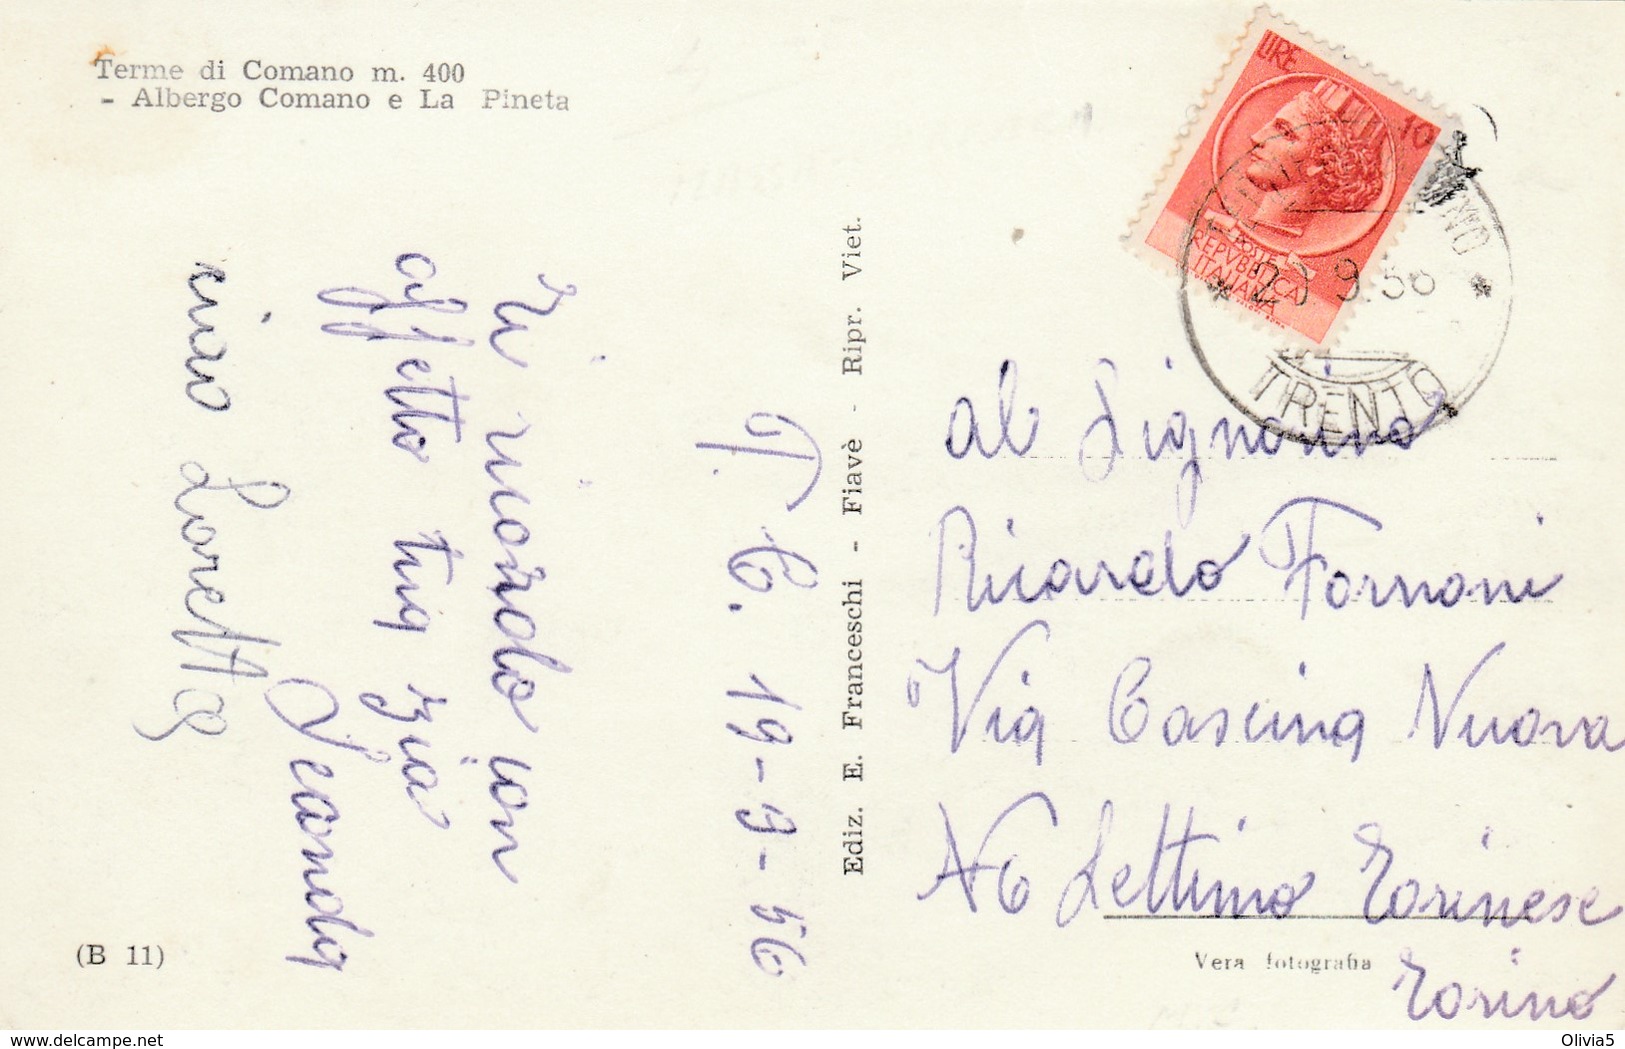 Terme di Comano m. 400
- Albergo Comano e La Pineta
T. C. 19-9-56
Ti ricordo con
affetto tua zia
Seconda
ciao Loretta
(B 11)
Ediz. E. Franceschi - Fiavè - Ripr. Viet.
LIRE 10
POSTE
REPVBBLICA
ITALIANA
9.56
TRENTO
al Signorino
Ricardo Fornoni
Via Cascina Nuova
N6 Settimo Torinese
Torino
Vera fotografia
delcampe.net
Olivia5